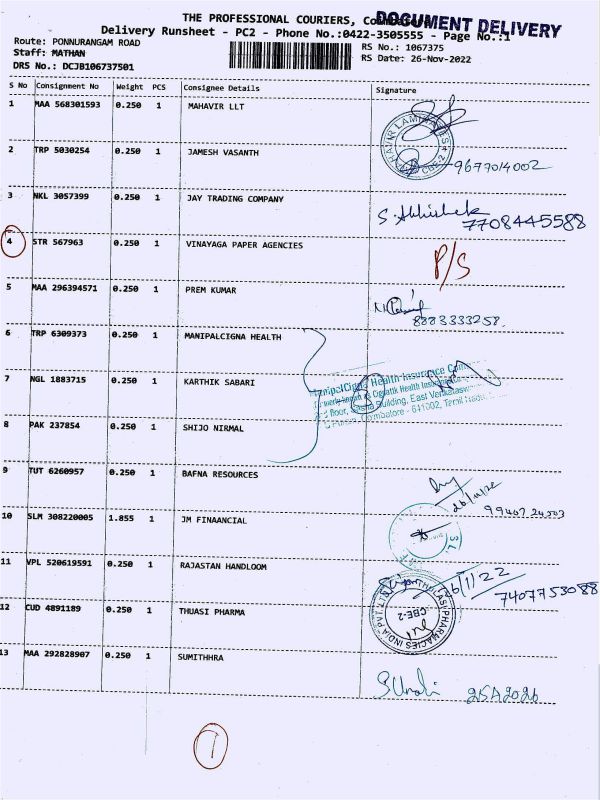 THE PROFESSIONAL COURIERS, Coimbatore
DOCUMENT DELIVERY
Delivery Runsheet - PC2 - Phone No.:0422-3505555 - Page No.:1
Route: PONNURANGAM ROAD
RS No.: 1067375
Staff: MATHAN
RS Date: 26-Nov-2022
DRS No.: DCJB106737501
S No Consignment No Weight PCS Consignee Details Signature
1 MAA 568301593 0.250 1 MAHAVIR LLT
2 TRP 5030254 0.250 1 JAMESH VASANTH
CBE-2
9677014002
3 NKL 3057399 0.250 1 JAY TRADING COMPANY
S. Abhishek
7708445588
4 STR 567963 0.250 1 VINAYAGA PAPER AGENCIES
P/S
5 MAA 296394571 0.250 1 PREM KUMAR
8883333258.
6 TRP 6309373 0.250 1 MANIPALCIGNA HEALTH
ManipalCigna Health Insurance
7 NGL 1883715 0.250 1 KARTHIK SABARI
Building, East
Coimbatore - 641002, Tamil Nadu
8 PAK 237854 0.250 1 SHIJO NIRMAL
9 TUT 6260957 0.250 1 BAFNA RESOURCES
26/11/22
99407 24503
10 SLM 308220005 1.855 1 JM FINAANCIAL
11 VPL 520619591 0.250 1 RAJASTAN HANDLOOM
26/11/22
7407753088
12 CUD 4891189 0.250 1 THUASI PHARMA
THULASI PHARMACIES INDIA PVT. LTD
CBE-2
13 MAA 292828907 0.250 1 SUMITHHRA
1